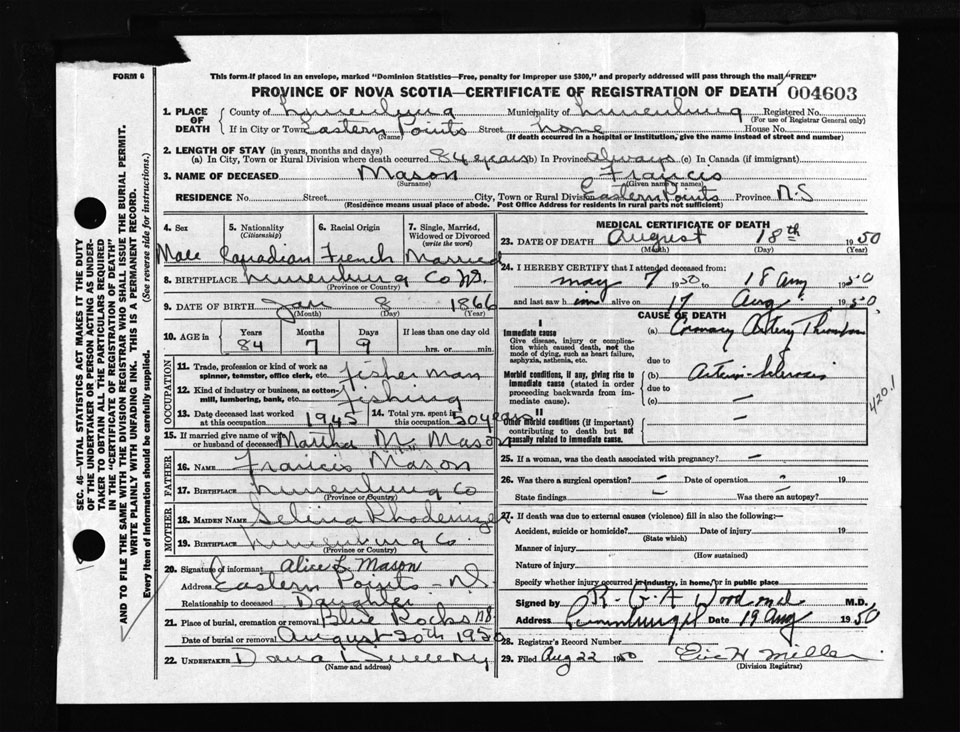 FORM 6
This form if placed in an envelope, marked "Dominion Statistics—Free, penalty for improper use $300," and properly addressed will pass through the mail "FREE"
PROVINCE OF NOVA SCOTIA—CERTIFICATE OF REGISTRATION OF DEATH 004603
1. PLACE OF DEATH
County of Lunenburg Municipality of Lunenburg Registered No.
(For use of Registrar General only)
If in City or Town Eastern Points Street none House No.
(Name) (If death occurred in a hospital or institution, give the name instead of street and number)
2. LENGTH OF STAY (in years, months and days)
(a) In City, Town or Rural Division where death occurred 84 years (b) In Province always (c) In Canada (if immigrant)
3. NAME OF DECEASED Mason Francis
(Surname) (Given name or names)
RESIDENCE No. Street City, Town or Rural Division Eastern Points Province N.S
(Residence means usual place of abode. Post Office Address for residents in rural parts not sufficient)
4. Sex 5. Nationality (Citizenship) 6. Racial Origin 7. Single, Married, Widowed or Divorced (write the word)
Male Canadian French Married
8. BIRTHPLACE Lunenburg Co N.S.
(Province or Country)
9. DATE OF BIRTH Jan 8 1866
(Month) (Day) (Year)
10. AGE in Years Months Days If less than one day old
84 7 9 hrs. or min.
OCCUPATION
11. Trade, profession or kind of work as spinner, teamster, office clerk, etc. fisher man
12. Kind of industry or business, as cotton-mill, lumbering, bank, etc. fishing
13. Date deceased last worked at this occupation 1945 14. Total yrs. spent in this occupation 50 years
15. If married give name of wife or husband of deceased Martha M. Mason
FATHER
16. NAME Francis Mason
17. BIRTHPLACE Lunenburg Co
(Province or Country)
MOTHER
18. MAIDEN NAME Selina Rhodenizer
19. BIRTHPLACE Lunenburg Co.
(Province or Country)
20. Signature of informant Alice L. Mason
Address Eastern Points N.S.
Relationship to deceased Daughter
21. Place of burial, cremation or removal Blue Rocks N.S.
Date of burial or removal August 20th 1950
22. UNDERTAKER Sweeny
(Name and address)
MEDICAL CERTIFICATE OF DEATH
23. DATE OF DEATH August 18th 1950
(Month) (Day) (Year)
24. I HEREBY CERTIFY that I attended deceased from:
may 7 1950 to 18 Aug 1950
and last saw him alive on 17 Aug 1950
CAUSE OF DEATH
I
Immediate cause
Give disease, injury or complication which caused death, not the mode of dying, such as heart failure, asphyxia, asthenia, etc.
(a) Coronary Artery Thrombosis
due to
Morbid conditions, if any, giving rise to immediate cause (stated in order proceeding backwards from immediate cause).
(b) Arterio-Sclerosis
due to
(c) —
420.1
II
Other morbid conditions (if important) contributing to death but not causally related to immediate cause.
25. If a woman, was the death associated with pregnancy? —
26. Was there a surgical operation? — Date of operation — 19
State findings — Was there an autopsy?
27. If death was due to external causes (violence) fill in also the following:—
Accident, suicide or homicide? Date of injury 19
(State which)
Manner of injury
(How sustained)
Nature of injury
Specify whether injury occurred in industry, in home, or in public place
Signed by R. G. A Wood md M.D.
Address Lunenburg Date 19 Aug 1950
28. Registrar's Record Number
29. Filed Aug 22 1950 Eric H Miller
(Division Registrar)
SEC. 46—VITAL STATISTICS ACT MAKES IT THE DUTY
OF THE UNDERTAKER OR PERSON ACTING AS UNDER-
TAKER TO OBTAIN ALL THE PARTICULARS REQUIRED
IN THE "CERTIFICATE OF REGISTRATION OF DEATH"
AND TO FILE THE SAME WITH THE DIVISION REGISTRAR WHO SHALL ISSUE THE BURIAL PERMIT.
WRITE PLAINLY WITH UNFADING INK. THIS IS A PERMANENT RECORD.
Every item of information should be carefully supplied. (See reverse side for instructions.)